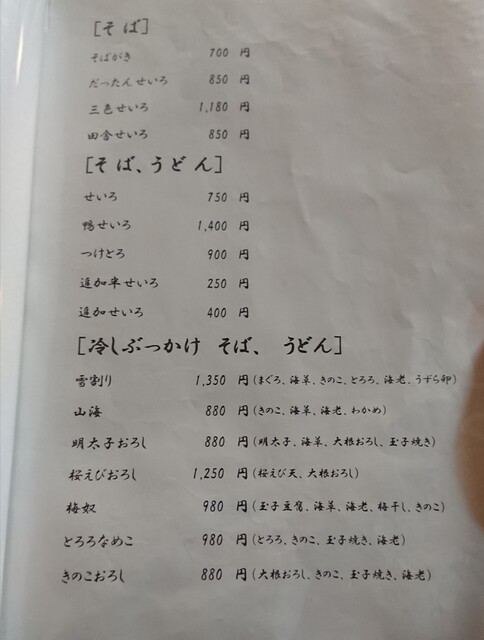 [そば]
そばがき 700 円
だったんせいろ 850 円
三色せいろ 1,180 円
田舎せいろ 850 円
[そば、うどん]
せいろ 750 円
鴨せいろ 1,400 円
つけとろ 900 円
追加半せいろ 250 円
追加せいろ 400 円
[冷しぶっかけ そば、うどん]
雪割り 1,350 円(まぐろ、海草、きのこ、とろろ、海老、うずら卵)
山海 880 円(きのこ、海草、海老、わかめ)
明太子おろし 880 円(明太子、海草、大根おろし、玉子焼き)
桜えびおろし 1,250 円(桜えび天、大根おろし)
梅奴 980 円(玉子豆腐、海草、海老、梅干し、きのこ)
とろろなめこ 980 円(とろろ、きのこ、玉子焼き、海老)
きのこおろし 880 円(大根おろし、きのこ、玉子焼き、海老)